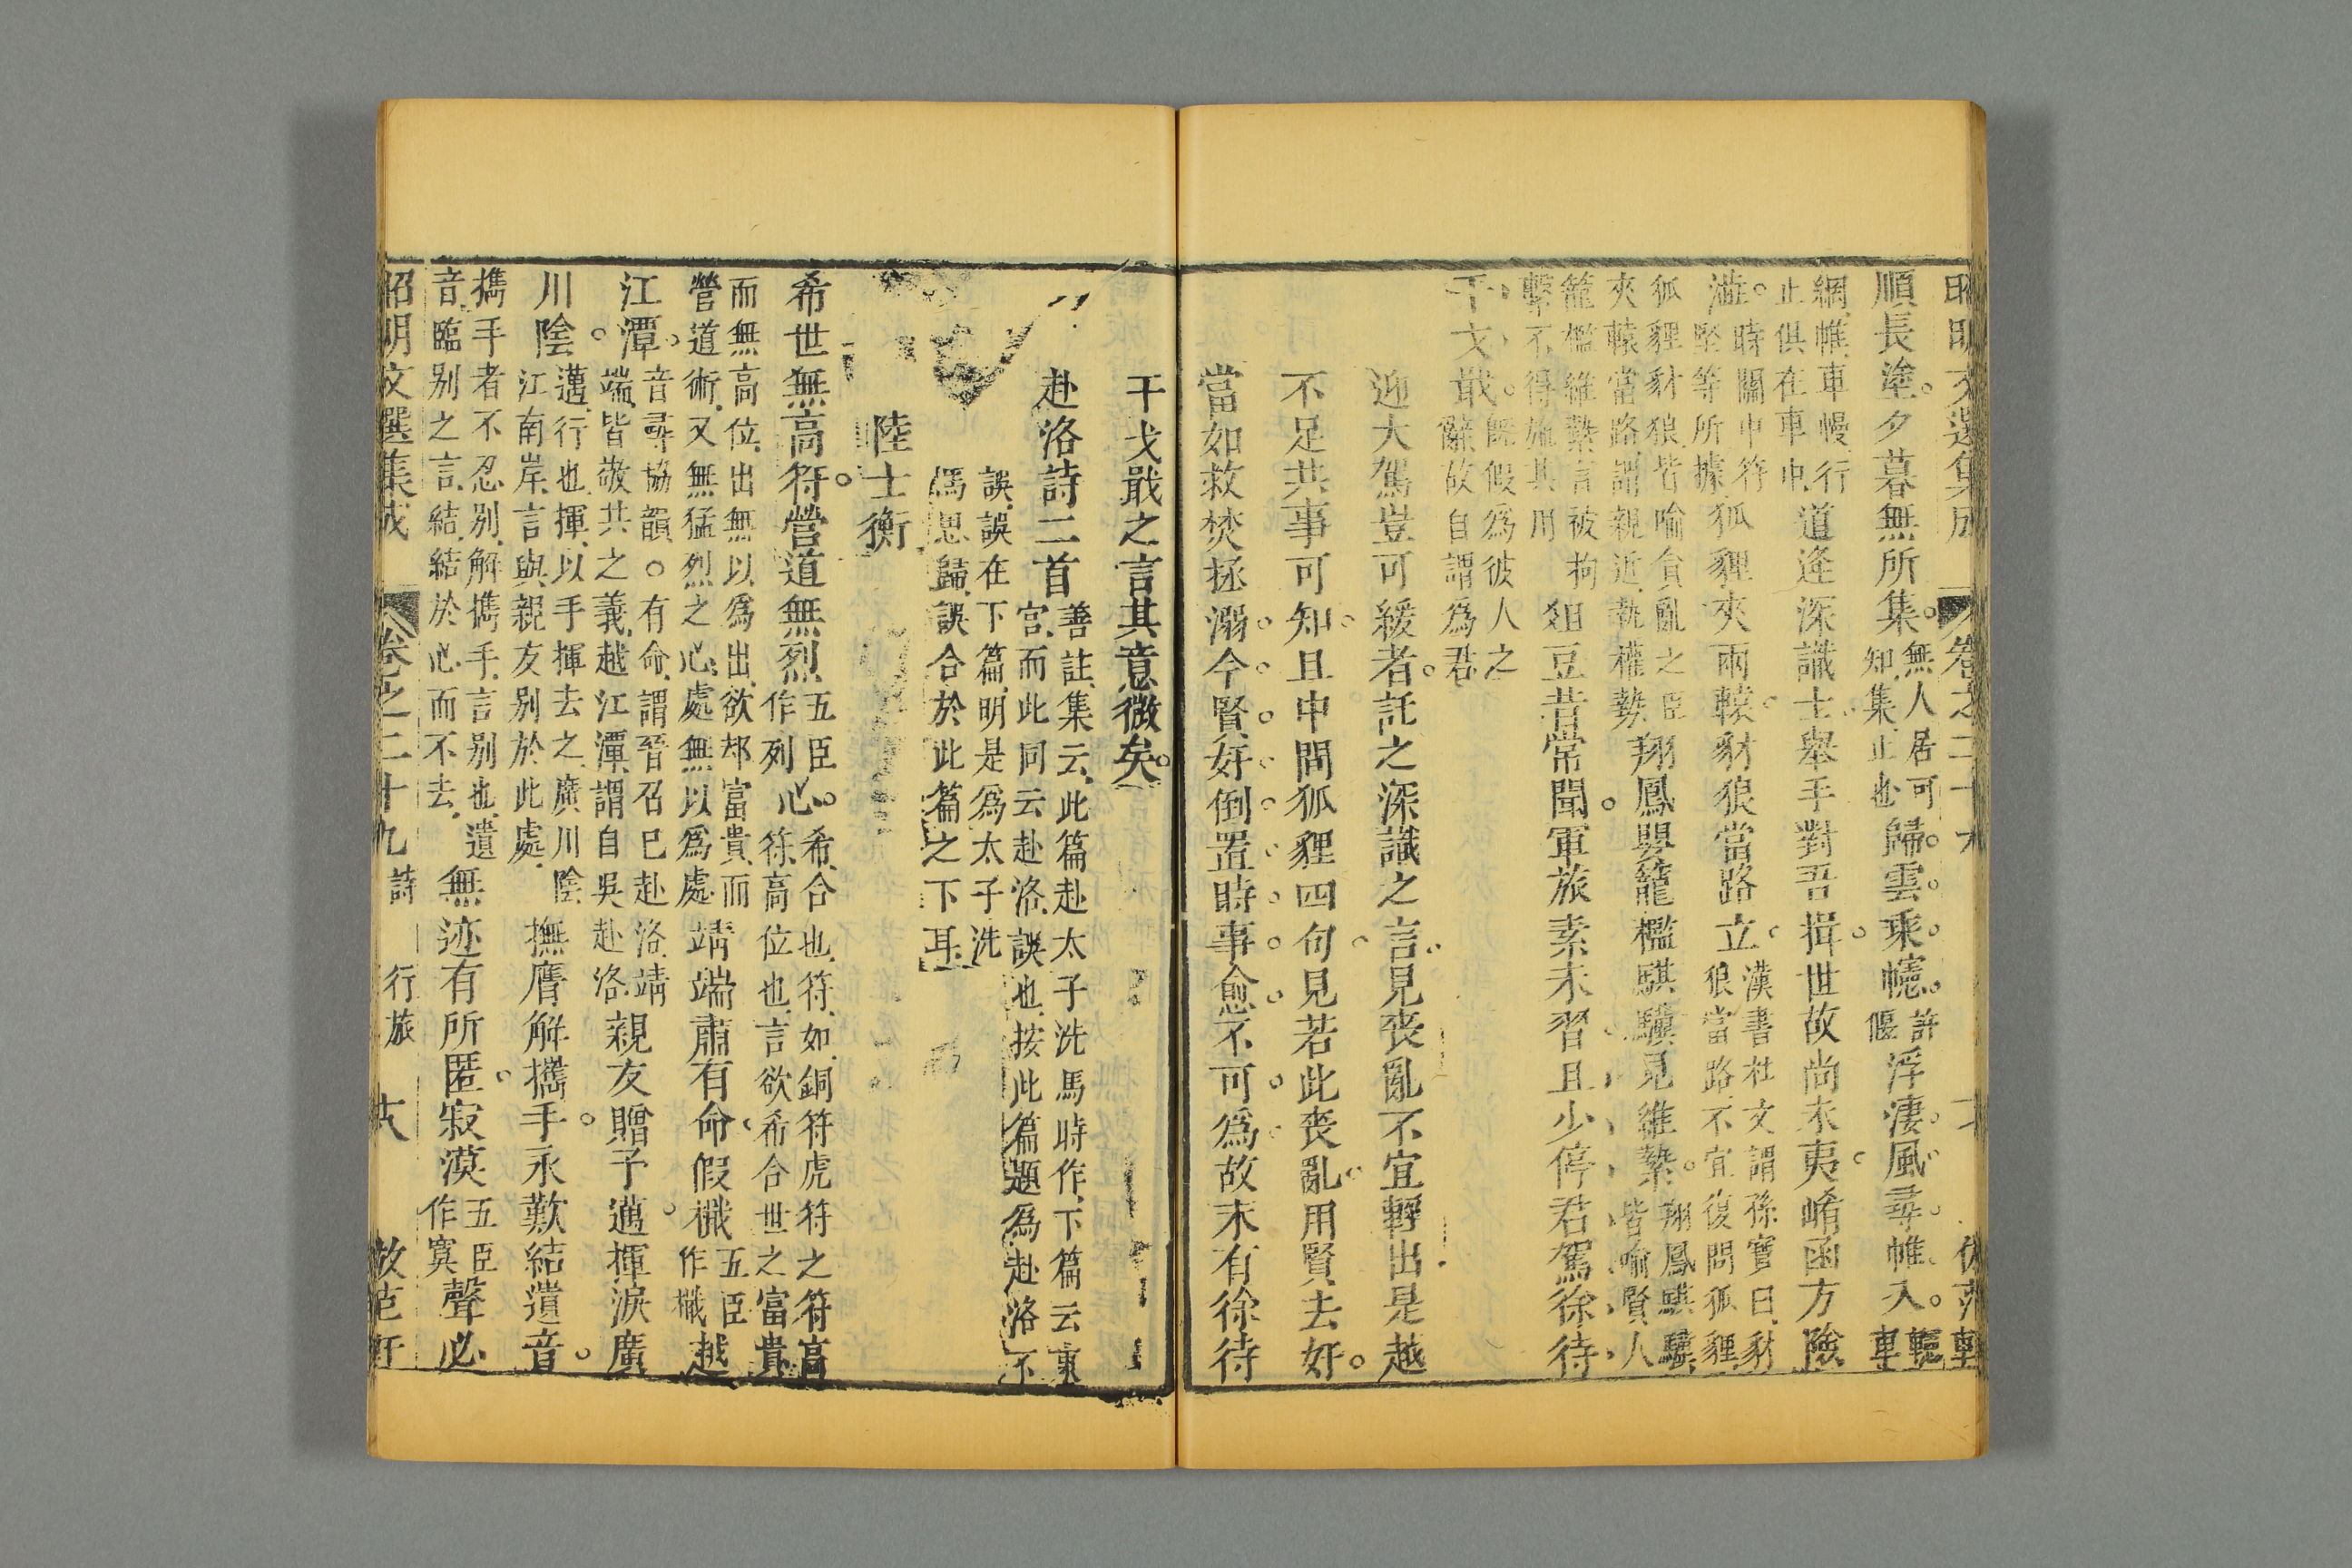 昭明文選集成 卷之二十九
順長塗。夕暮無所集。無人居可知集止也歸雲乘幰許偃浮淒風尋帷入。車幰車
網帷車幔行止俱在車中道逢深識士舉手對吾揖世故尚未夷崤函方險
澁。時關中符堅等所據狐貍夾兩轅豺狼當路立漢書杜文謂孫寶曰豺狼當路不宜復問狐貍
狐貍豺狼皆喻負亂之臣夾轅當路謂親近執權勢翔鳳嬰籠檻騏驥見維縶。翔鳳騏驥皆喻賢人
籠檻維縶言被拘攣不得施其用俎豆昔常聞。軍旅素未習且少停君駕徐待
干戈戢。旣假為彼人之辭故自謂為君
迎大駕豈可緩者。託之深識之言見喪亂不宜輕出是越
不足共事可知且中間狐貍四句見若此喪亂用賢去奸。
當如救焚拯溺今賢奸倒置時事愈不可為故末有徐待
干戈戢之言其意微矣。
赴洛詩二首善註集云此篇赴太子洗馬時作下篇云東宮而此同云赴洛誤也按此篇題為赴洛不
誤誤在下篇明是為太子洗馬思歸誤合於此篇之下耳
陸士衡
希世無高符。營道無烈五臣作列心。希合也符如銅符虎符之符高符高位也言欲希合世之富貴
而無高位出無以為出欲却富貴而營道術又無猛烈之心處無以為處靖端肅有命假檝五臣作檝越
江潭。音尋協韻。有命謂晉召已赴洛靖端皆敬共之義越江潭謂自吳赴洛親友贈予邁揮淚廣
川陰。邁行也揮以手揮去之廣川陰江南岸言與親友別於此處撫膺解攜手。永歎結遺音。
攜手者不忍別解攜手言別也遺音臨別之言結結於心而不去無迹有所匿寂漠五臣作寞聲必
昭明文選集成 卷之二十九 詩 行旅 六 倣范軒